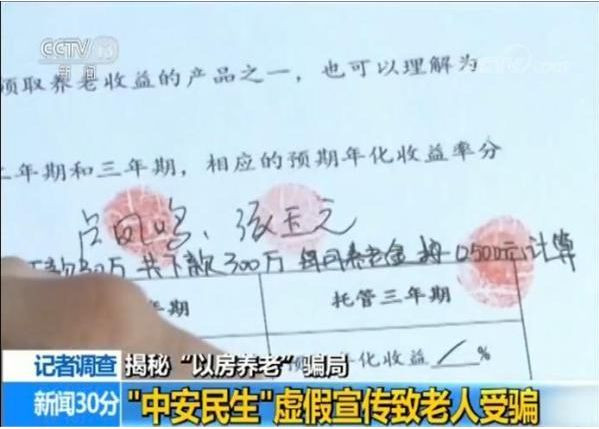 CCTV 13
新闻
领取养老收益的产品之一，也可以理解为
二年期和三年期，相应的预期年化收益率分
张玉元
共下款300万 每月养老金按10500元计算
托管三年期
年化收益 %
记者调查 揭秘“以房养老”骗局
新闻30分 "中安民生"虚假宣传致老人受骗